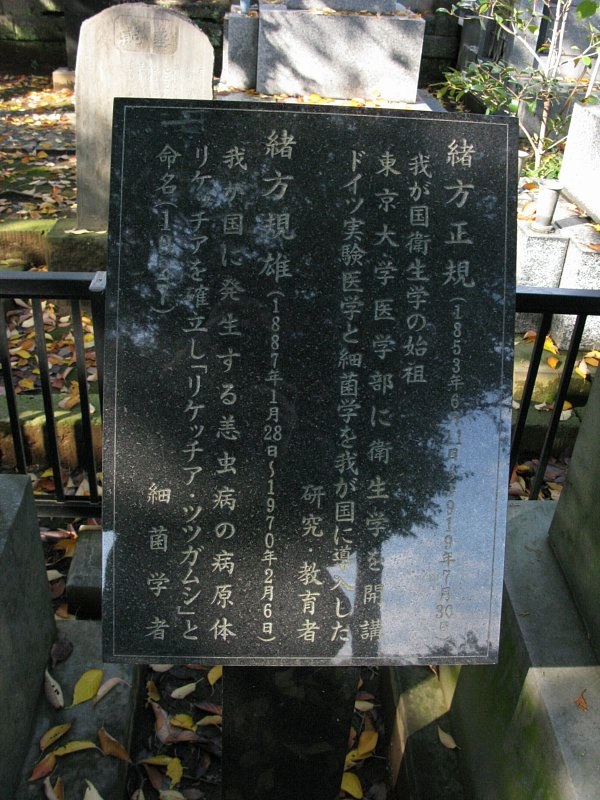 緒方正規(1853年6 1日 919年7月30日
我が国衛生学の始祖
東京大学医学部に衛生学を開講
ドイツ実験医学と細菌学を我が国に導入した
研究・教育者
緒方規雄(1887年1月28日〜1970年2月6日)
我が国に発生する恙虫病の病原体
リケッチアを確立し「リケッチア・ツツガムシ」と
命名(1931)
細菌学者